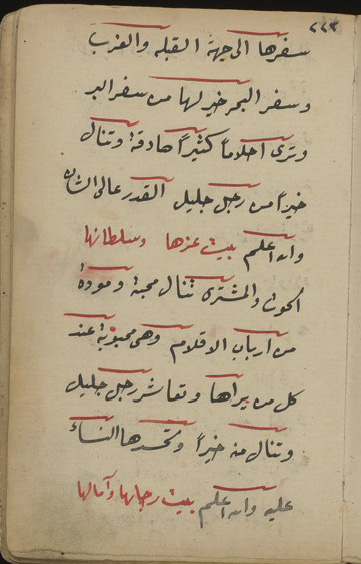 ٢٢٣
سفرها الى جهة القبله والغرب
وسفر البحر خير لها من سفر البر
وترى احلاماً كثيراً صادقة وتنال
خيراً من رجل جليل القدر عالى الشان
والله اعلم بيت عزها وسلطانها
الحوت والمشترى تنال محبة ومودة
من ارباب الاقلام وهى محبوبة عند
كل من يراها وتعاشر رجل جليل
وتنال منه خيراً وتحسدها النساء
عليه والله اعلم بيت رجائها وآمالها